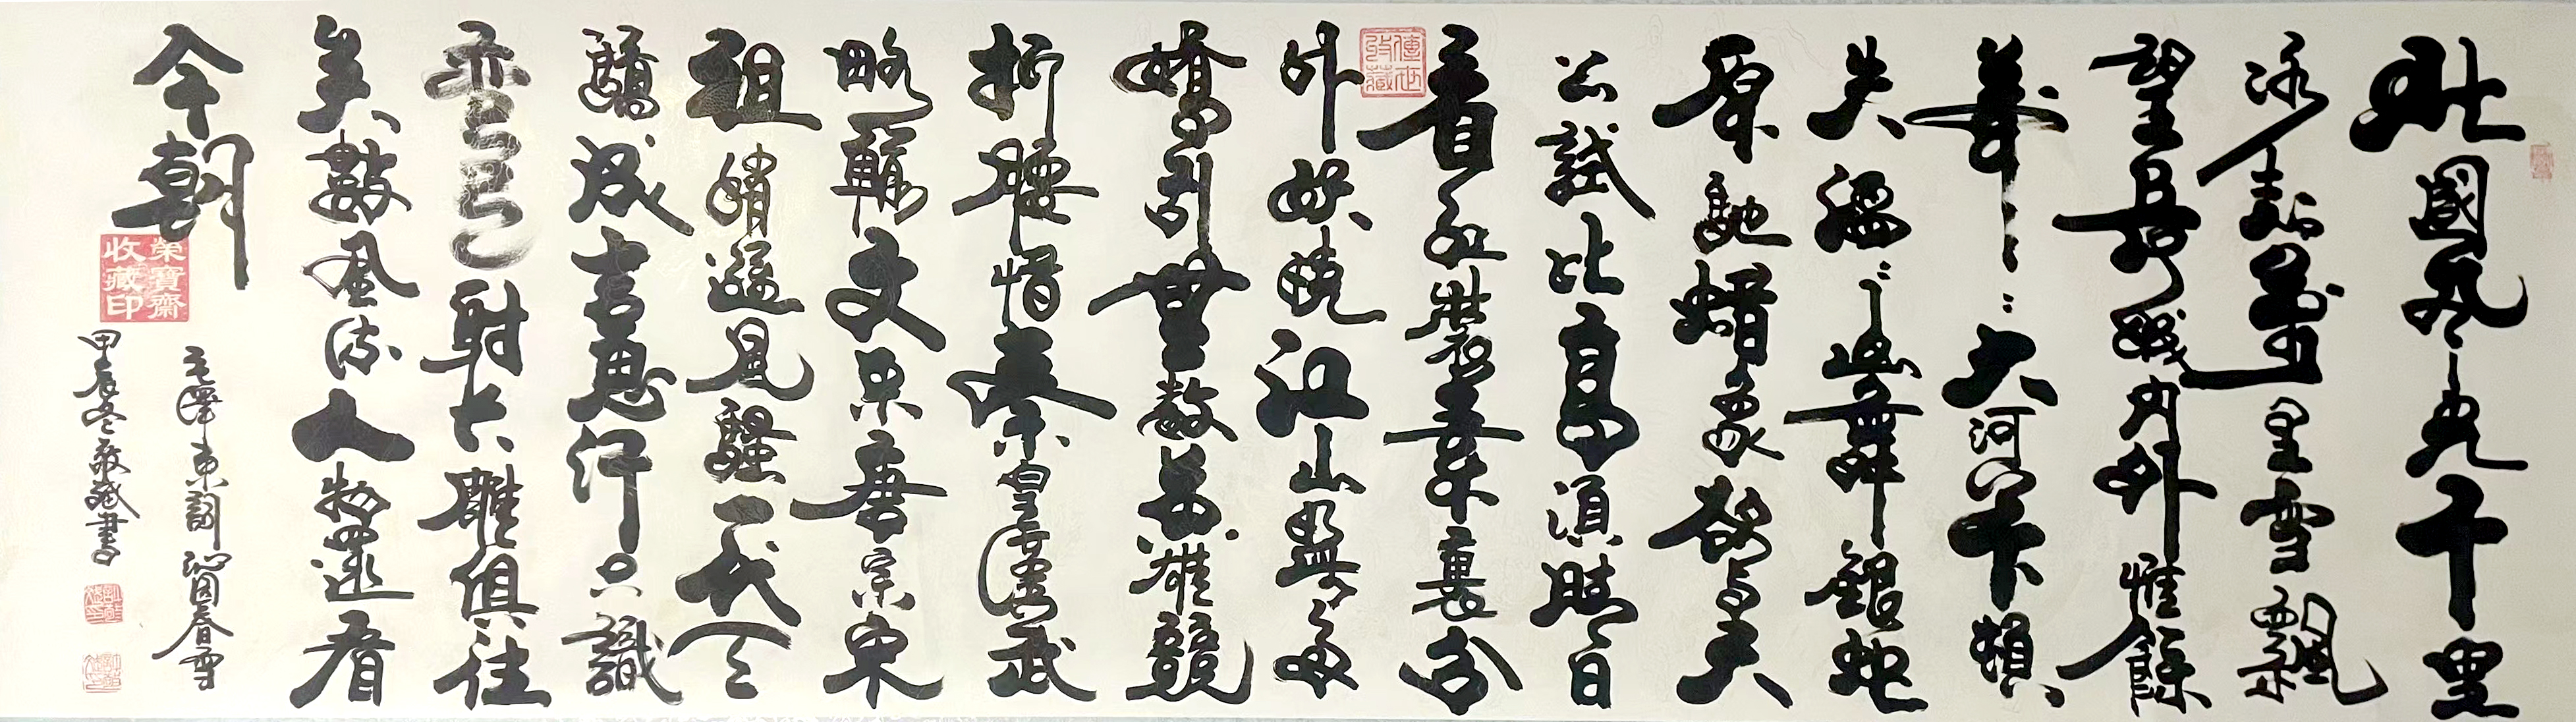 北國風光千里
冰封萬里雪飄
望長城内外惟餘
莽〻大河上下頓
失滔〻山舞銀蛇
原馳蠟象欲與天
公試比高須晴日
看紅裝素裹分
外妖嬈江山如此多
嬌引無數英雄競
折腰惜秦皇漢武
略輸文采唐宗宋
祖稍遜風騷一代天
驕成吉思汗只識
彎弓射大雕俱往
矣數風流人物還看
今朝
毛澤東詞沁園春雪
甲辰冬書
榮寶齋
收藏印
傳世
收藏